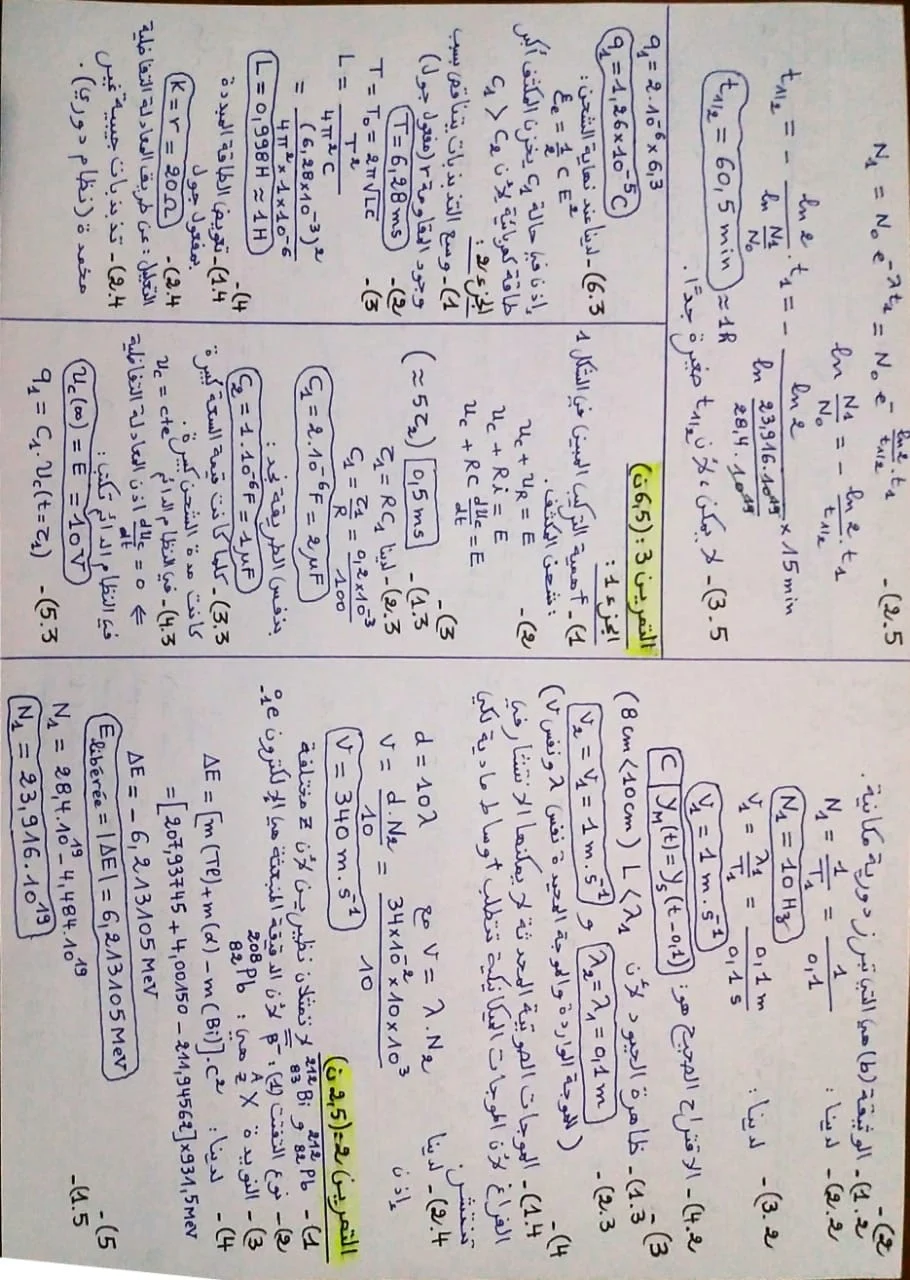 2)-
1.2)- الوثيقة (b) هي التي تبرز دورية مكانية.
2.2)- لدينا: N₁ = 1/T₁ = 1/0,1
N₁ = 10 Hz
3.2)- لدينا: V₁ = λ₁/T₁ = 0,1 m/0,1 s
V₁ = 1 m.s⁻¹
4.2)- الاقتراح الصحيح هو: C y_M(t) = y_S(t-0,1)
3)-
1.3)- ظاهرة الحيود لأن L < λ₁ (8 cm < 10 cm)
2.3)- λ₂ = λ₁ = 0,1 m و V₂ = V₁ = 1 m.s⁻¹
(للموجة الواردة والموجة المحيدة نفس λ ونفس V)
4)-
1.4)- الموجات الصوتية المحدثة لا يمكنها الانتشار في
الفراغ لأن الموجات الميكانيكية تتطلب أوساط مادية لكي
تنتشر.
2.4)- لدينا V = λ.Ne مع d = 10λ
إذن V = d.Ne/10 = 34×10⁻²×10×10³/10
V = 340 m.s⁻¹
التمرين 2 = (2,5 ن)
1)- ²¹²₈₂Pb و ²¹²₈₃Bi لا تمثلان نظيرين لأن Z مختلفة
2)- نوع التفتت (1): β⁻ لأن الدقيقة المنبعثة هي الإلكترون ⁰₋₁e
3)- النويدة ᴬ_Z X هي: ²⁰⁸₈₂Pb
4)- لدينا: ΔE = [m(Tl) + m(α) - m(Bi)].c²
= [207,93745 + 4,00150 - 211,94562]×931,5 MeV
ΔE = -6,213105 MeV
E libérée = |ΔE| = 6,213105 MeV
5)-
1.5)- N₁ = 28,4.10¹⁹ - 4,484.10¹⁹
N₁ = 23,916.10¹⁹
2.5)- N₁ = N₀ e^(-λt₁) = N₀ e^(-ln2/t₁/₂ .t₁)
ln N₁/N₀ = - ln2/t₁/₂ .t₁
t₁/₂ = - ln2/ln(N₁/N₀) .t₁ = - ln2/ln(23,916.10¹⁹/28,4.10¹⁹) × 15 min
t₁/₂ = 60,5 min ≈ 1h
3.5)- لا يمكن، لأن t₁/₂ صغيرة جدًا.
التمرين 3: (6,5 ن)
الجزء 1:
1)- أهمية التركيب المبين في الشكل 1
: شحن المكثف.
2)- u_C + u_R = E
u_C + Ri = E
u_C + RC du_C/dt = E
3)-
1.3)- 0,5 ms (≈ 5τ₂)
2.3)- لدينا τ₁ = RC₁
C₁ = τ₁/R = 0,2×10⁻³/100
C₁ = 2.10⁻⁶F = 2 μF
بنفس الطريقة نجد:
C₂ = 1.10⁻⁶F = 1 μF
3.3)- كلما كانت قيمة السعة كبيرة
كانت مدة الشحن كبيرة.
4.3)- في النظام الدائم u_C = cte
⇐ du_C/dt = 0 إذن المعادلة التفاضلية
في النظام الدائم تكتب:
u_C(∞) = E = 10 V
5.3)- q₁ = C₁.u_C(t = τ₁)
q₁ = 2.10⁻⁶ × 6,3
q₁ = 1,26×10⁻⁵C
6.3)- لدينا عند نهاية الشحن:
ξe = 1/2 C E²
إذن في حالة C₁ يخزن المكثف أكبر
طاقة كهربائية لأن C₁ > C₂
الجزء 2:
1)- وسع التذبذبات يتناقص بسبب
وجود المقاومة r (مفعول جول)
2)- T = 6,28 ms
3)- T = T₀ = 2π√LC
L = T²/4π²C
= (6,28×10⁻³)²/4π²×1×10⁻⁶
L = 0,998H ≈ 1H
4)-
1.4)- تعويض الطاقة المبددة
بمفعول جول
2.4)- K = r = 20Ω
التعليل: عن طريق المعادلة التفاضلية
2.4)- تذبذبات جيبية غير
مخمدة (نظام دوري).